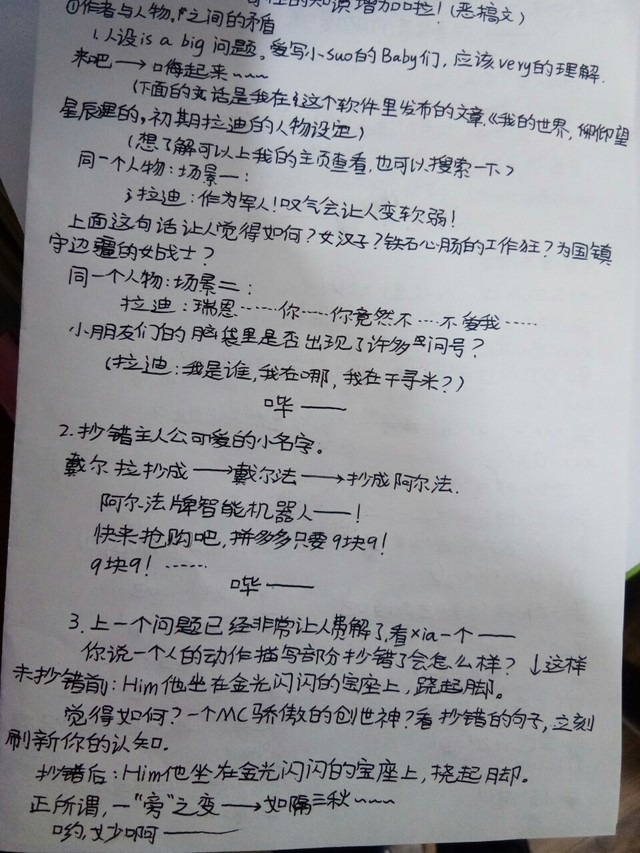 奇怪的知识增加啦!(恶搞文)
①作者与人物,之间的矛盾
1.人设is a big 问题。爱写小suo的Baby们,应该very的理解.
来吧→嗨起来~~~
(下面的话是我在这个软件里发布的文章.《我的世界,仰仰望
星辰》里的,初期拉迪的人物设定)
(想了解可以上我的主页查看,也可以搜索一下)
同一个人物:场景一:
拉迪:作为军人!叹气会让人变软弱!
上面这句话让人觉得如何?女汉子?铁石心肠的工作狂?为国镇
守边疆的女战士?
同一个人物:场景二:
拉迪:瑞恩……你……你竟然不……不爱我……
小朋友们的脑袋里是否出现了许多问号?
(拉迪:我是谁,我在哪,我在干寻米?)
哔——
2.抄错主人公可爱的小名字。
戴尔拉抄成→戴尔法→抄成阿尔法.
阿尔法牌智能机器人——!
快来抢购吧,拼多多只要9块9!
9块9!……
哔——
3.上一个问题已经非常让人费解了,看xia一个——
你说一个人的动作描写部分抄错了会怎么样?↓这样
未抄错前:Him他坐在金光闪闪的宝座上,跷起脚。
觉得如何?一个MC骄傲的创世神?看抄错的句子,立刻
刷新你的认知.
抄错后:Him他坐在金光闪闪的宝座上,挠起脚。
正所谓,一"旁"之变→如隔三秋~~~
哟,妙啊——